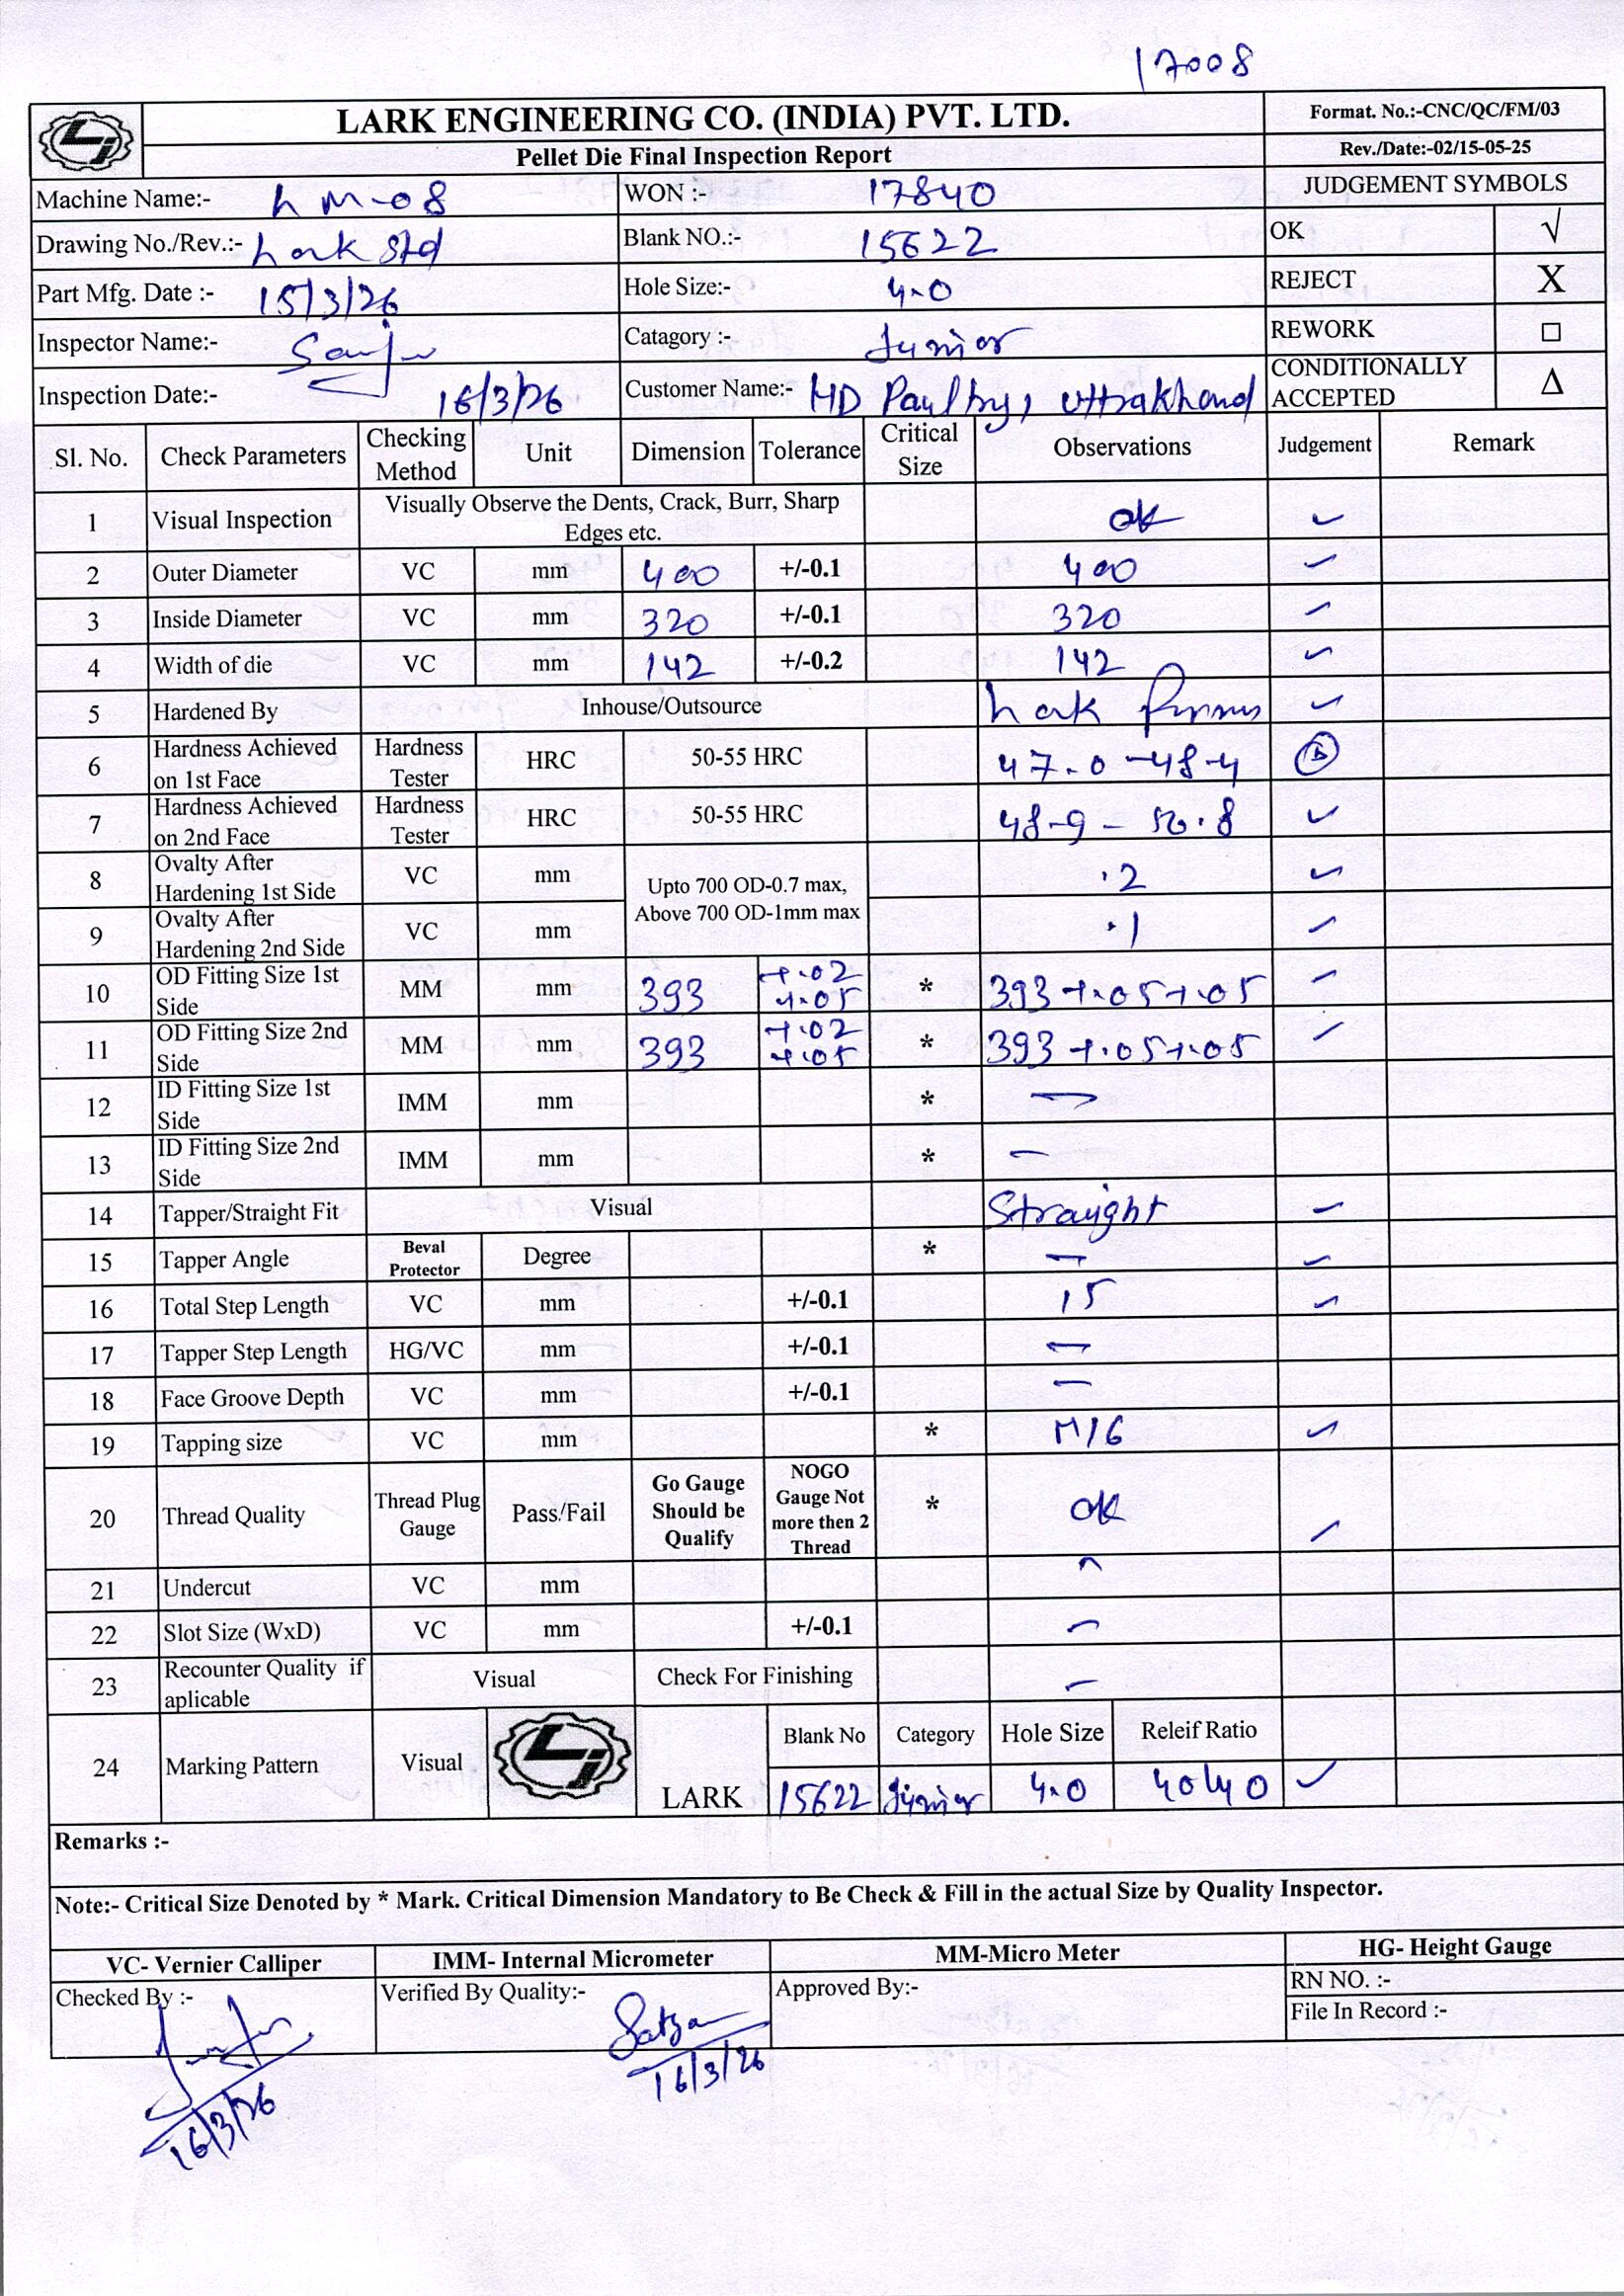 17008
LARK ENGINEERING CO. (INDIA) PVT. LTD.
Format. No.:-CNC/QC/FM/03
Pellet Die Final Inspection Report
Rev./Date:-02/15-05-25
Machine Name:- LM-08 WON :- 17840 JUDGEMENT SYMBOLS
Drawing No./Rev.:- Lark Std Blank NO.:- 15622 OK √
Part Mfg. Date :- 15/3/26 Hole Size:- 4.0 REJECT X
Inspector Name:- Sanju Catagory :- Junior REWORK □
Inspection Date:- 16/3/26 Customer Name:- HD Paultry, Uttrakhand CONDITIONALLY ACCEPTED Δ
Sl. No. Check Parameters Checking Method Unit Dimension Tolerance Critical Size Observations Judgement Remark
1 Visual Inspection Visually Observe the Dents, Crack, Burr, Sharp Edges etc. ok ✓
2 Outer Diameter VC mm 400 +/-0.1 400 ✓
3 Inside Diameter VC mm 320 +/-0.1 320 ✓
4 Width of die VC mm 142 +/-0.2 142 ✓
5 Hardened By Inhouse/Outsource Lark ✓
6 Hardness Achieved on 1st Face Hardness Tester HRC 50-55 HRC 47.0-48.4
7 Hardness Achieved on 2nd Face Hardness Tester HRC 50-55 HRC 48.9 - 50.8 ✓
8 Ovalty After Hardening 1st Side VC mm Upto 700 OD-0.7 max, Above 700 OD-1mm max .2 ✓
9 Ovalty After Hardening 2nd Side VC mm .1 ✓
10 OD Fitting Size 1st Side MM mm 393 +.02 +.05 * 393 +.05 +.05 ✓
11 OD Fitting Size 2nd Side MM mm 393 +.02 +.05 * 393 +.05 +.05 ✓
12 ID Fitting Size 1st Side IMM mm * —
13 ID Fitting Size 2nd Side IMM mm * —
14 Tapper/Straight Fit Visual Straight ✓
15 Tapper Angle Beval Protector Degree * — ✓
16 Total Step Length VC mm +/-0.1 15 ✓
17 Tapper Step Length HG/VC mm +/-0.1 —
18 Face Groove Depth VC mm +/-0.1 —
19 Tapping size VC mm * M16 ✓
20 Thread Quality Thread Plug Gauge Pass/Fail Go Gauge Should be Qualify NOGO Gauge Not more then 2 Thread * ok ✓
21 Undercut VC mm —
22 Slot Size (WxD) VC mm +/-0.1 —
23 Recounter Quality if aplicable Visual Check For Finishing —
24 Marking Pattern Visual LARK Blank No Category Hole Size Releif Ratio
15622 Junior 4.0 40/40 ✓
Remarks :-
Note:- Critical Size Denoted by * Mark. Critical Dimension Mandatory to Be Check & Fill in the actual Size by Quality Inspector.
VC- Vernier Calliper IMM- Internal Micrometer MM-Micro Meter HG- Height Gauge
Checked By :- Verified By Quality:- Approved By:- RN NO. :-
File In Record :-
16/3/26
16/3/26